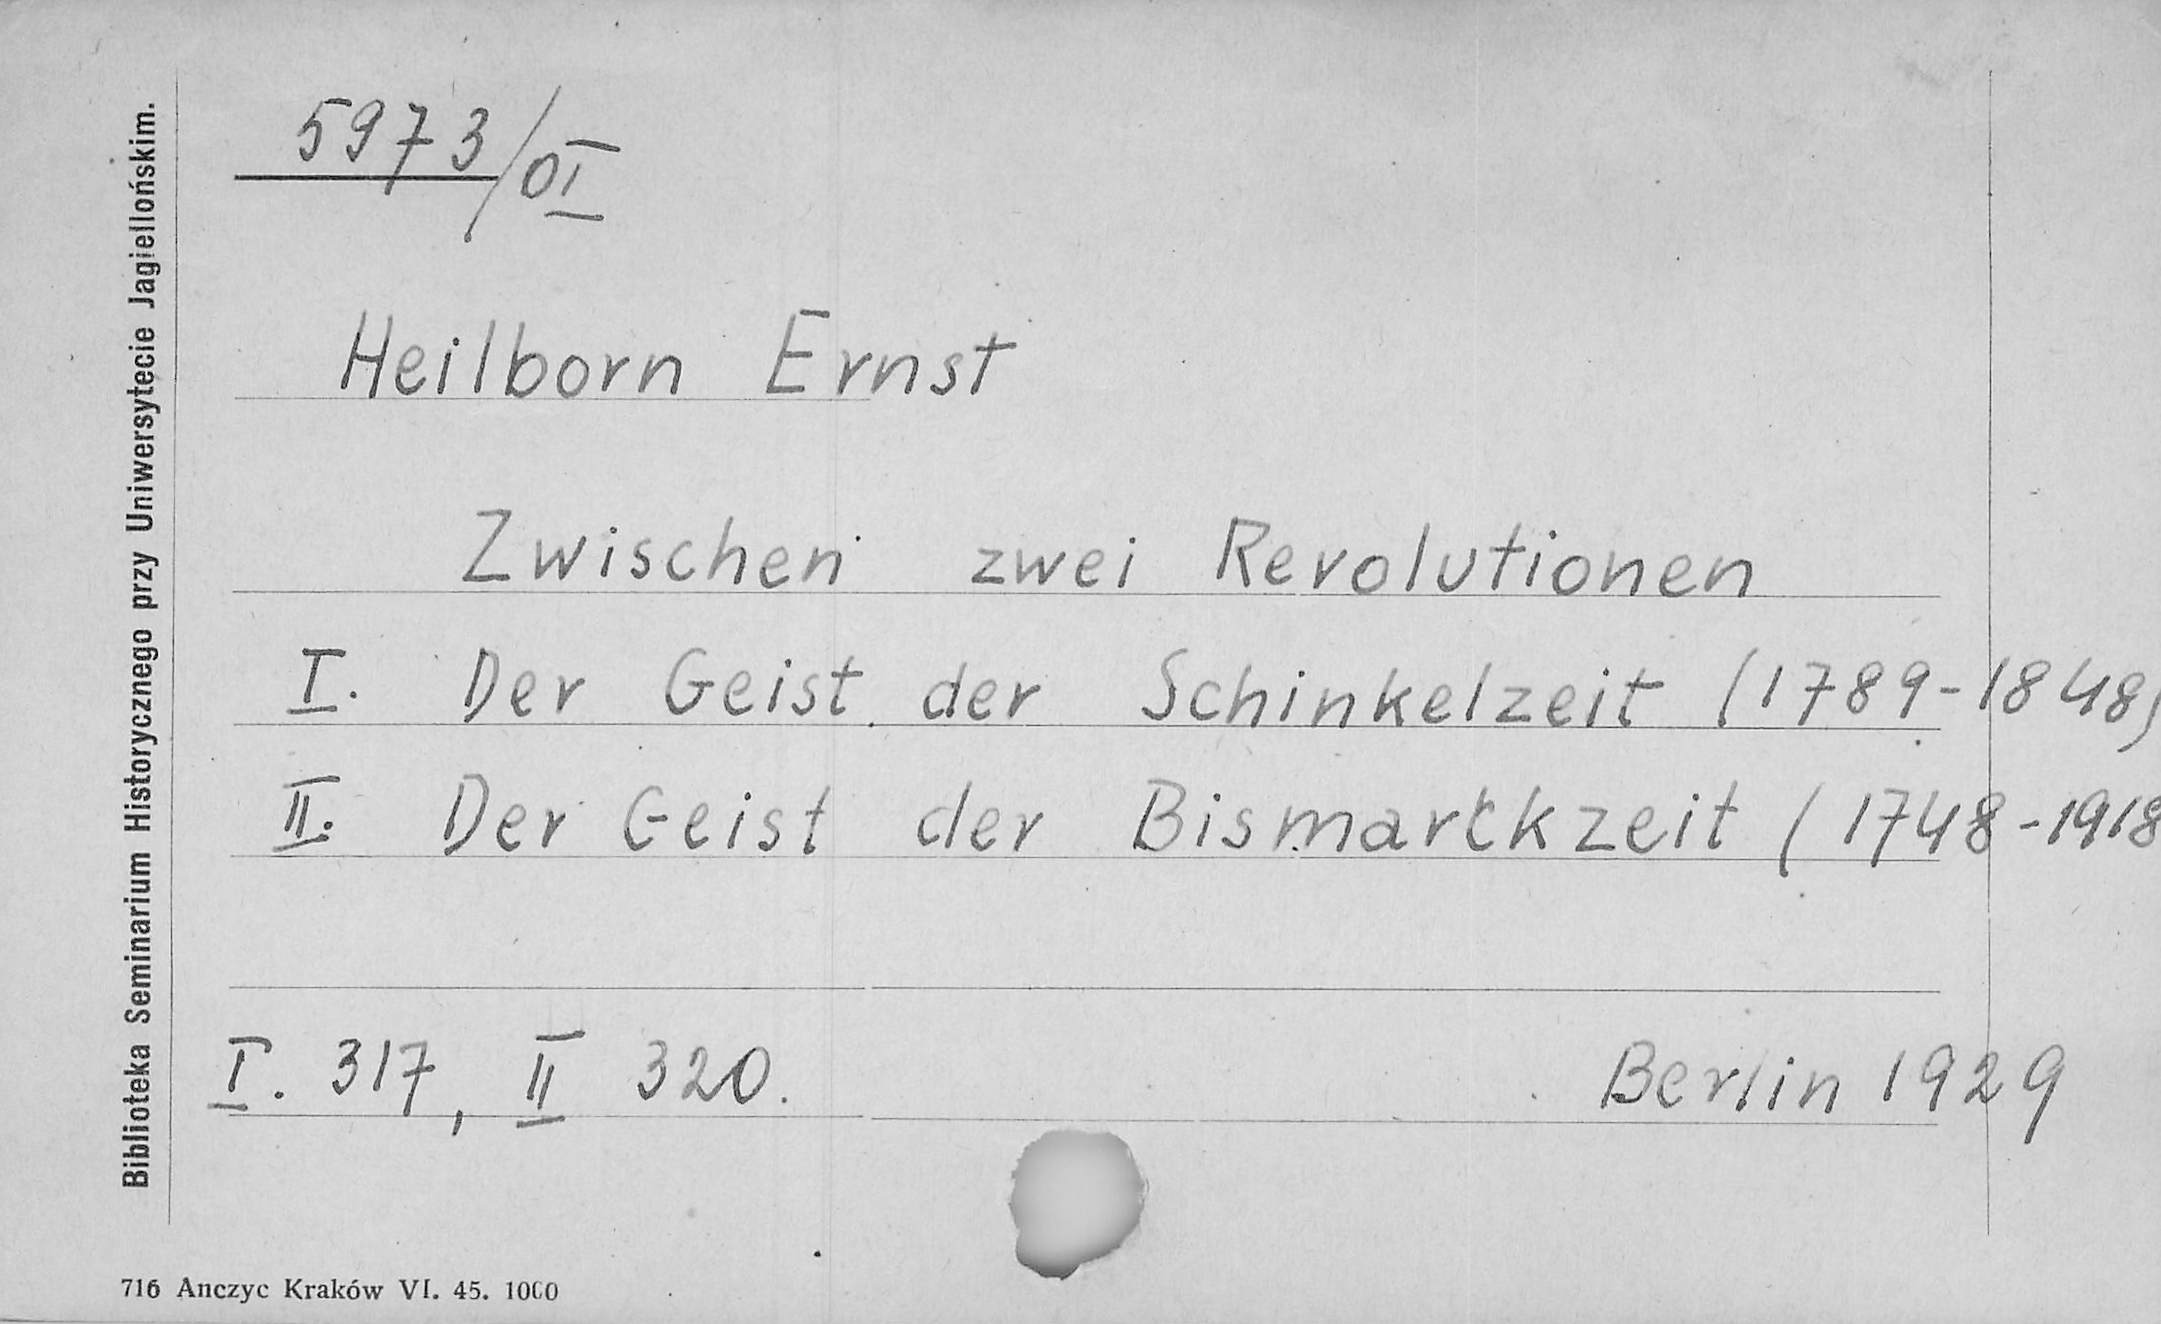 5973/0I
Heilborn Ernst
Zwischen zwei Revolutionen
I. Der Geist der Schinkelzeit (1789-1848)
II. Der Geist der Bismarckzeit (1748-1918
I. 317, II 320. Berlin 1929
Biblioteka Seminarium Historycznego przy Uniwersytecie Jagiellońskim.
716 Anczyc Kraków VI. 45. 1000